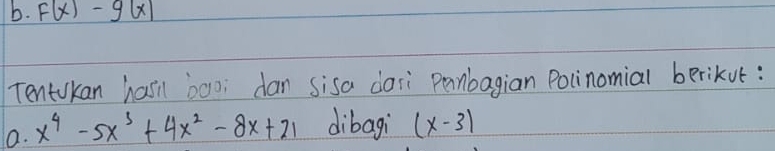 b. F(x) - g(x)
Tentukan hasil bagi dan sisa dari Pembagian Polinomial berikut :
a. x⁴ - 5x³ + 4x² - 8x + 21 dibagi (x-3)